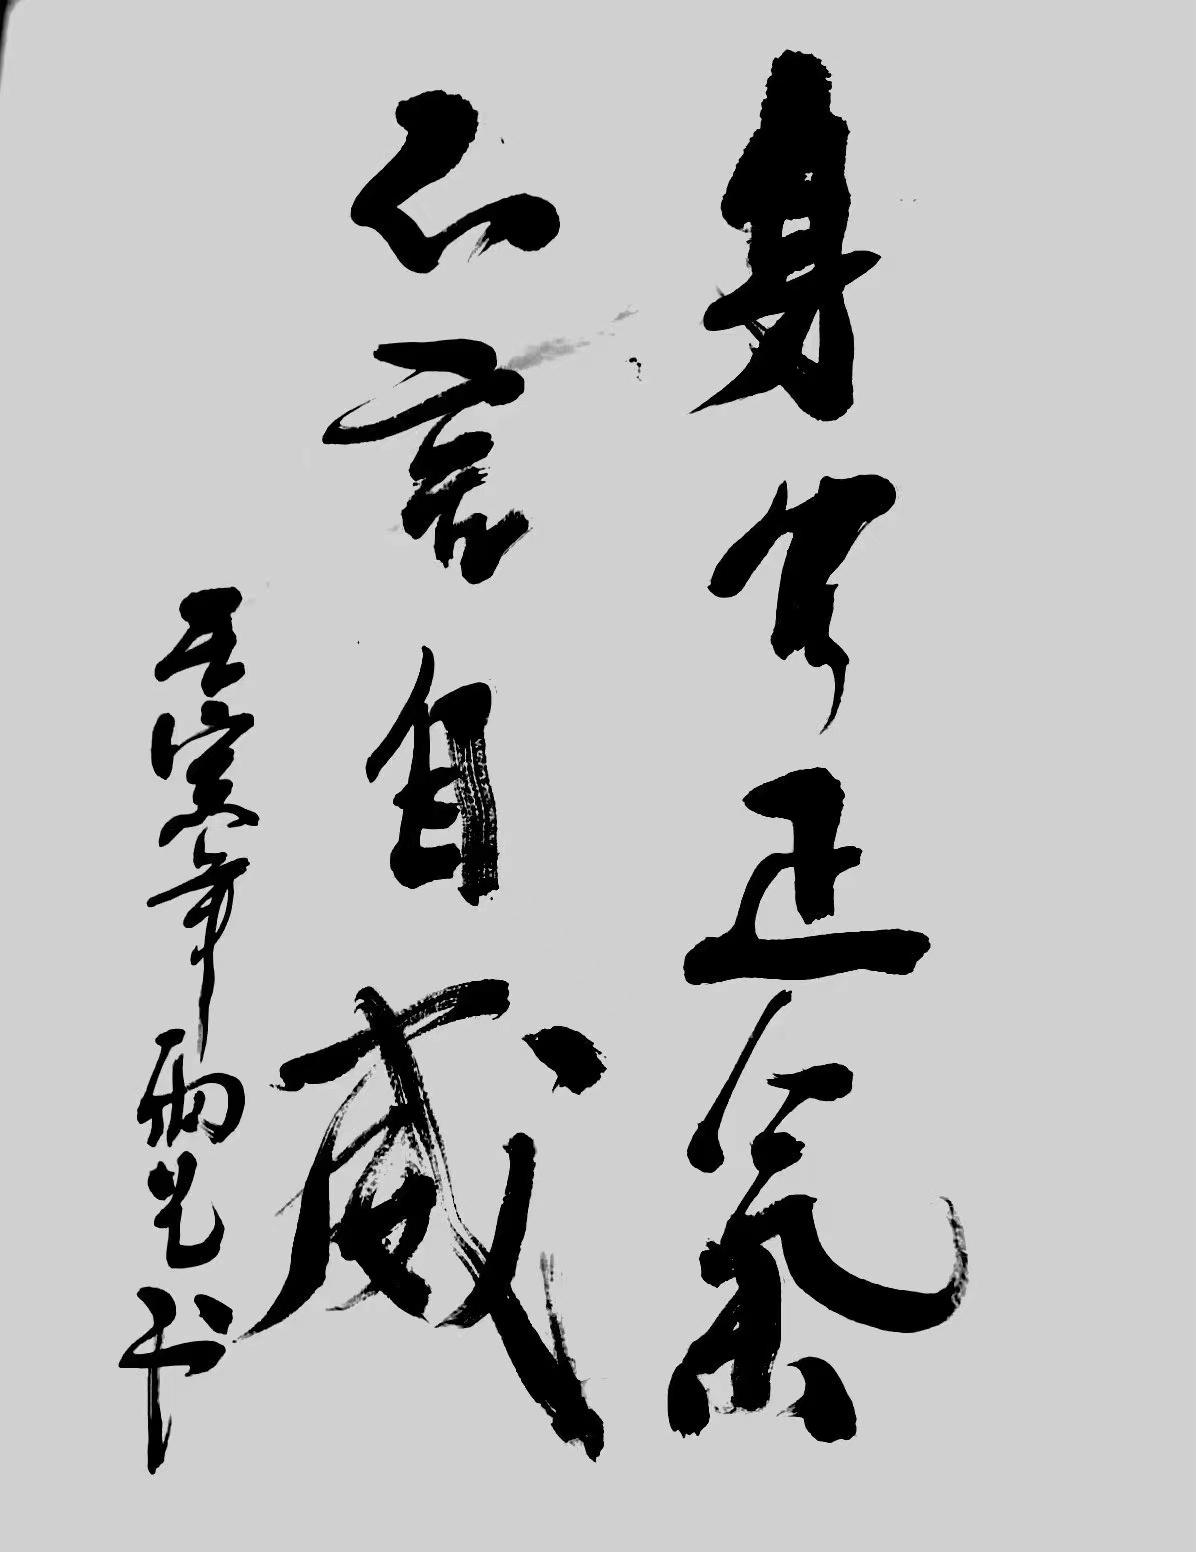 身有正氣
不言自威
壬寅年雨书